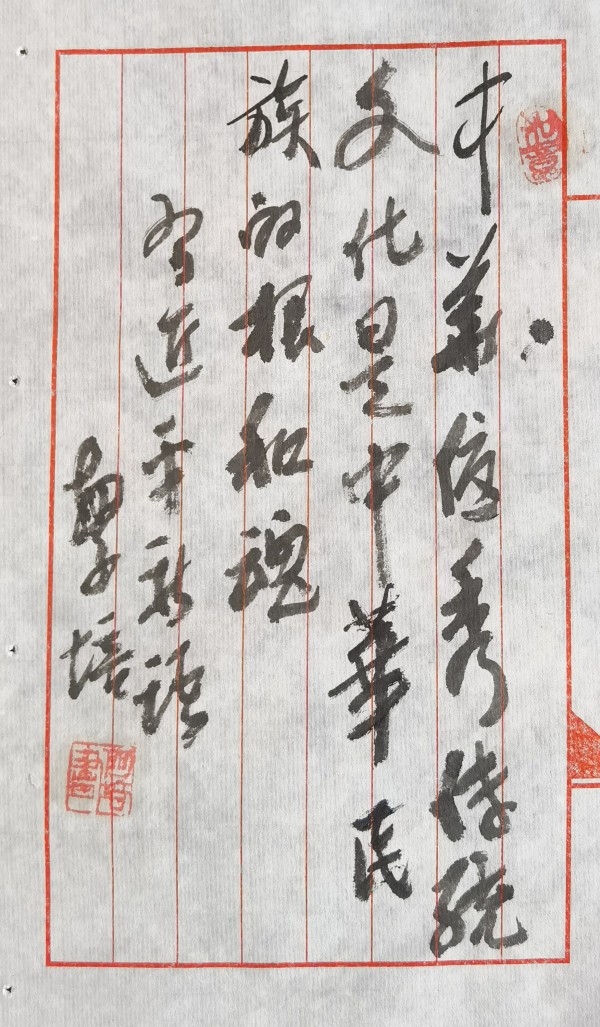 中華優秀传統
文化是中華民
族的根和魂
習近平
學培